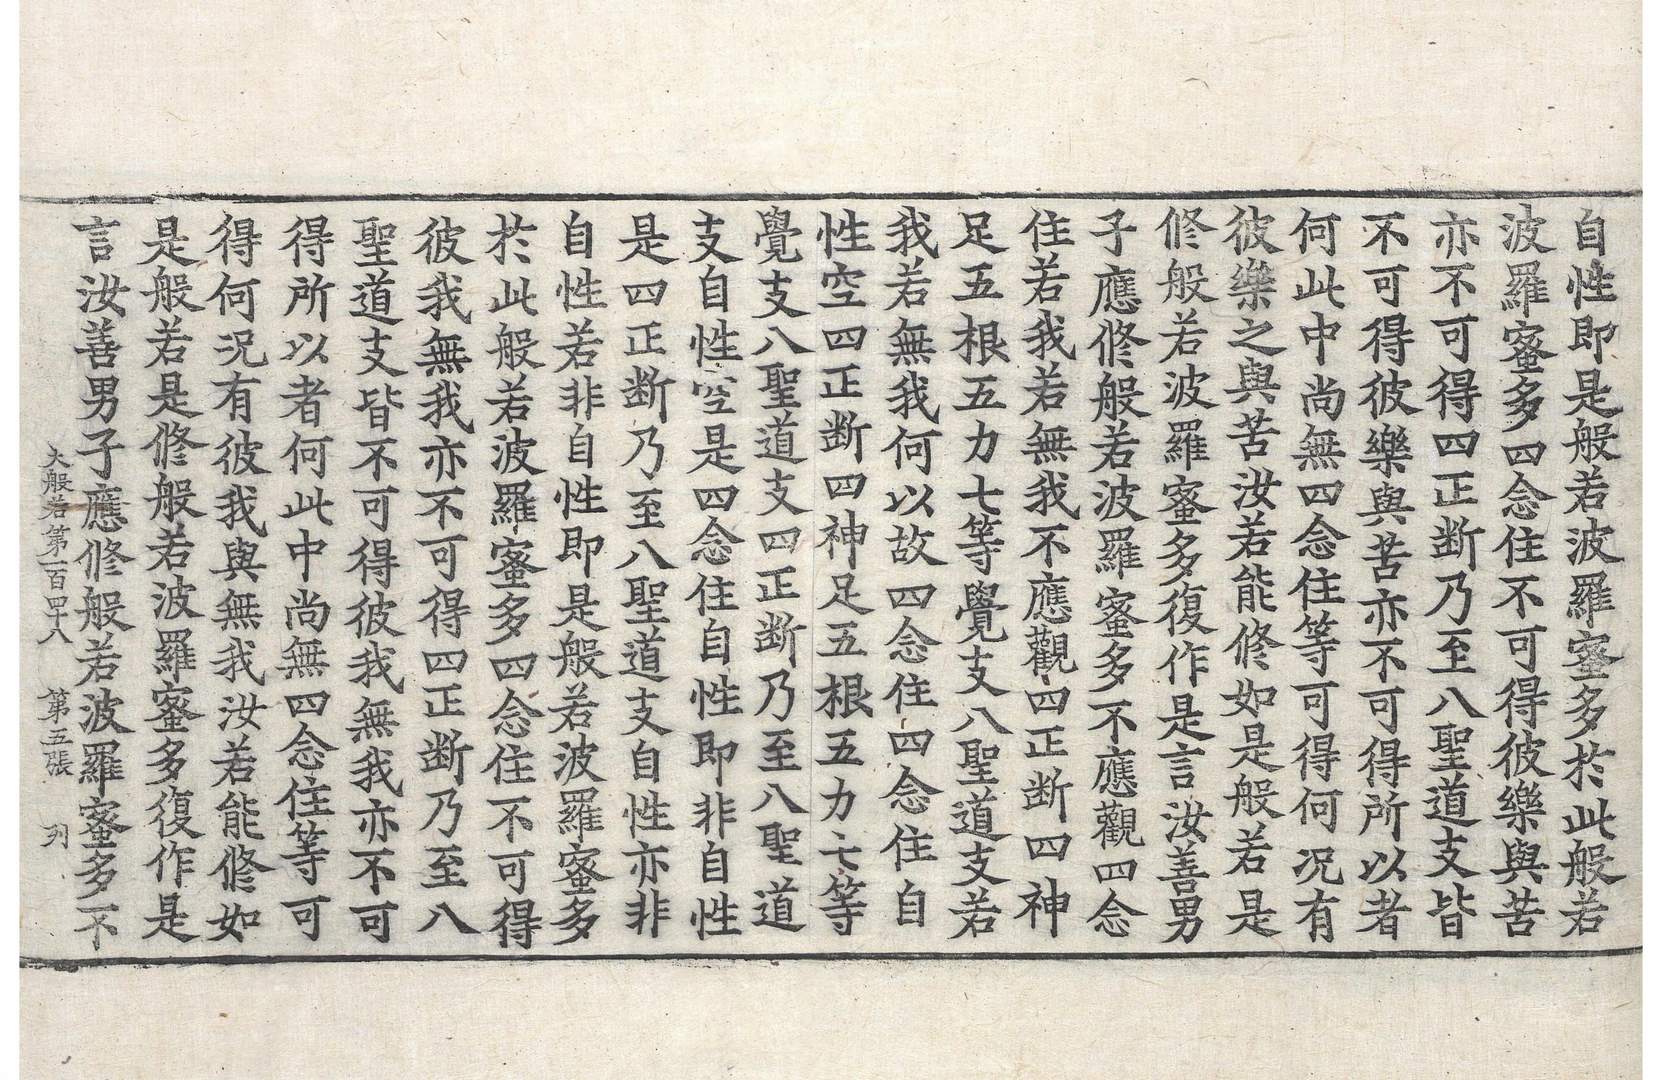 自性即是般若波羅蜜多於此般若
波羅蜜多四念住不可得彼樂與苦
亦不可得四正断乃至八聖道支皆
不可得彼樂與苦亦不可得所以者
何此中尚無四念住等可得何况有
彼樂之與苦汝若能修如是般若是
修般若波羅蜜多復作是言汝善男
子應修般若波羅蜜多不應觀四念
住若我若無我不應觀四正断四神
足五根五力七等覺支八聖道支若
我若無我何以故四念住四念住自
性空四正断四神足五根五力七等
覺支八聖道支四正断乃至八聖道
支自性空是四念住自性即非自性
是四正断乃至八聖道支自性亦非
自性若非自性即是般若波羅蜜多
於此般若波羅蜜多四念住不可得
彼我無我亦不可得四正断乃至八
聖道支皆不可得彼我無我亦不可
得所以者何此中尚無四念住等可
得何况有彼我與無我汝若能修如
是般若是修般若波羅蜜多復作是
言汝善男子應修般若波羅蜜多不
大般若第一百四十八 第五張 列